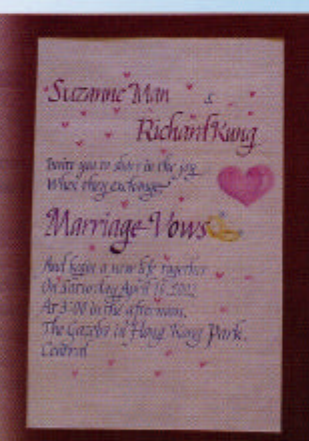 Suzanne Man &
Richard Kung
Invite you to share in the joy
When they exchange
Marriage Vows
And begin a new life together
On Saturday April
At 3:00 in the afternoon,
The Gazebo in Hong Kong Park,
Central